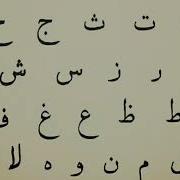 ت ث ج ح
ر ز س ش
ط ظ ع غ ف
م ن و ه لا